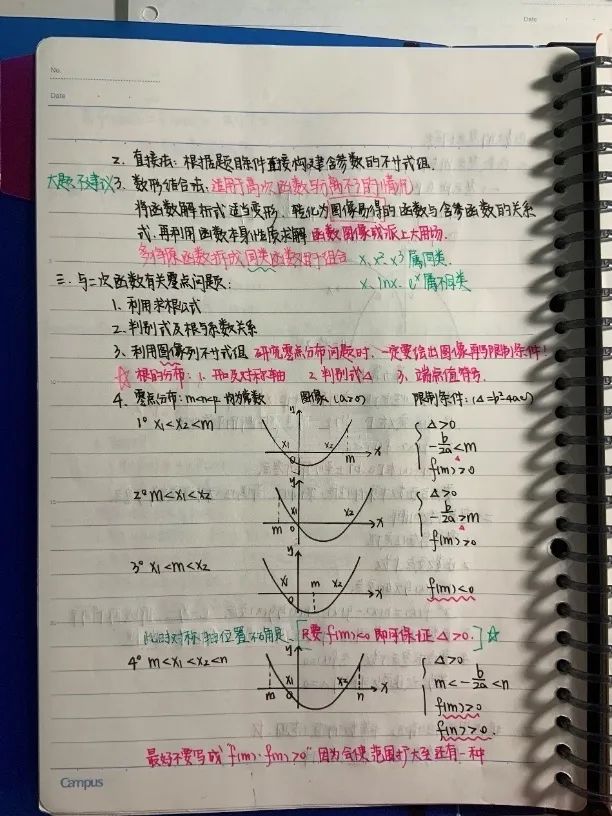 Date
No.
Date
2. 直接法: 根据题目条件直接构建含参数的不等式组.
大题不建议 3. 数形结合法: 适用于高次函数与分离不了的情况
将函数解析式适当变形, 转化为图像易得的函数与含参函数的关系
式, 再利用函数本身性质求解 函数图像或派上大用场.
多项保函数拆成同类函数用于组合 x、x²、x³属同类.
三. 与二次函数有关零点问题: x、lnx、eˣ属不同类.
1. 利用求根公式
2. 判别式及根与系数关系
3. 利用图像列不等式组 研究零点分布问题时, 一定要绘出图像再写限制条件!
☆ 根的分布: 1. 开口及对称轴 2. 判别式Δ 3. 端点值符号.
4. 零点分布: m<n<p 均为常数 图像 (a>0) 限制条件: (Δ=b²-4ac)
1° x₁<x₂<m
y x₁ x₂ 0 m x
Δ>0
-b/2a<m
f(m)>0
2° m<x₁<x₂
y x₁ x₂ m 0 x
Δ>0
-b/2a>m
f(m)>0
3° x₁<m<x₂
y x₁ m x₂ 0 x
f(m)<0
此时对称轴位置不用管. [只要f(m)<0 即可保证Δ>0.] ☆
4° m<x₁<x₂<n
y x₁ x₂ m 0 n x
Δ>0
m<-b/2a<n
f(m)>0
f(n)>0.
最好不要写成"f(m)·f(n)>0", 因为会使范围扩大至还有一种
Campus